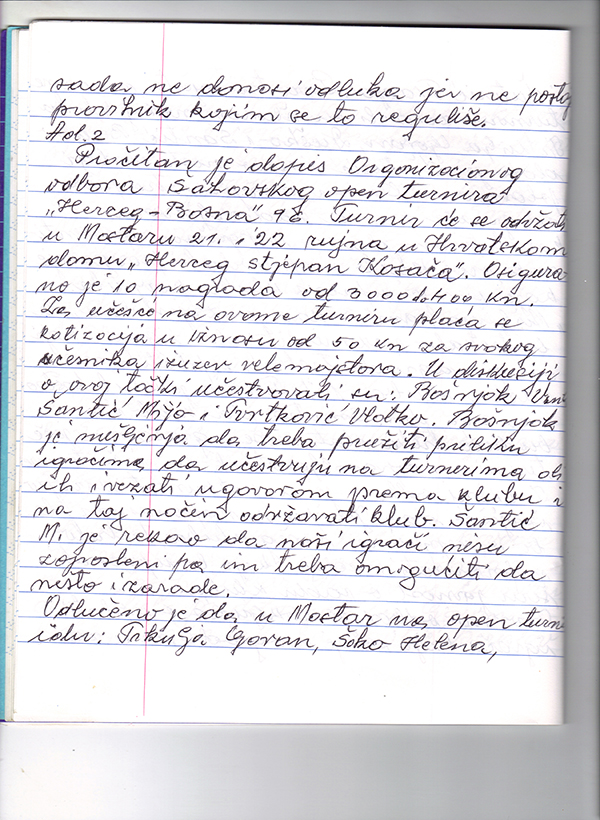 sada ne donosi odluka jer ne postoj
pravilnik kojim se to reguliše.
Ad. 2
Pročitan je dopis Organizacionog
odbora Šahovskog open turnira
„Herceg-Bosna" 96. Turnir će se održati
u Mostaru 21. i 22 rujna u Hrvatskom
domu „Herceg stjepan Kosača". Osigura
no je 10 nagrada od 3000 do 400 Kn.
Za učešće na ovome turniru plaća se
kotizacija u iznosu od 50 Kn za svakog
učesnika izuzev velemajstora. U diskusiji
o ovoj točki učestvovali su: Bošnjak
Šantić Mijo i Tvrtković Vlatko. Bošnjak
je mišljenja da treba pružiti priliku
igračima da učestvuju na turnirima ali
ih i vezati ugovorom prema klubu i
na taj način održavati klub. Šantić
M. je rekao da naši igrači nisu
zaposleni pa im treba omogućiti da
nešto izarade.
Odlučeno je da u Mostar na open turni
idu: Trkulja Goran, Šoko Helena,